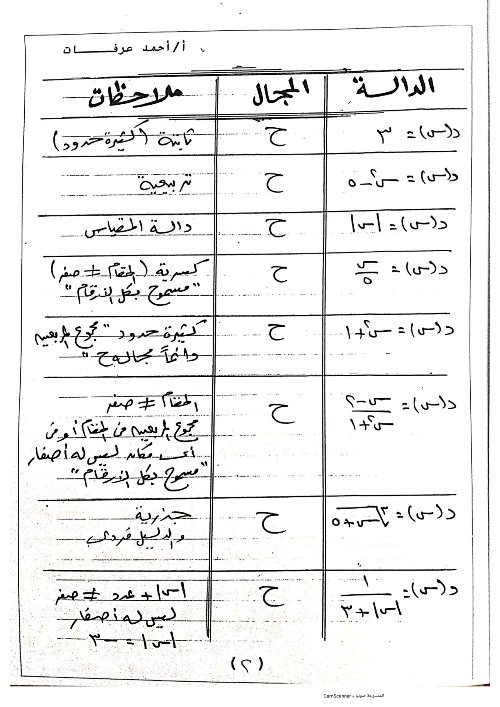 أ/أحمد عرفات
الدالة المجال ملاحظات
د(س) = ٣ ح ثابتة (كثيرة حدود)
د(س) = س² - ٥ ح تربيعية
د(س) = |س| ح دالة المقياس
د(س) = س/٥ ح كسرية (المقام ≠ صفر)
"مسموح بكل الأرقام"
د(س) = س² + ١ ح كثيرة حدود "مجموع مربعين
دائماً مجاله ح"
د(س) = (س - ٢)/(س² + ١) ح المقام ≠ صفر
مجموع مربعين فى المقام أو فى
أى مكان ليس له أصفار
"مسموح بكل الأرقام"
د(س) = ∛(س + ٥) ح جذرية
والدليل فردى
د(س) = ١/(|س| + ٣) ح |س| + عدد ≠ صفر
ليس له أصفار
|س| = -٣
(٢)
الممسوحة ضوئيا بـ CamScanner